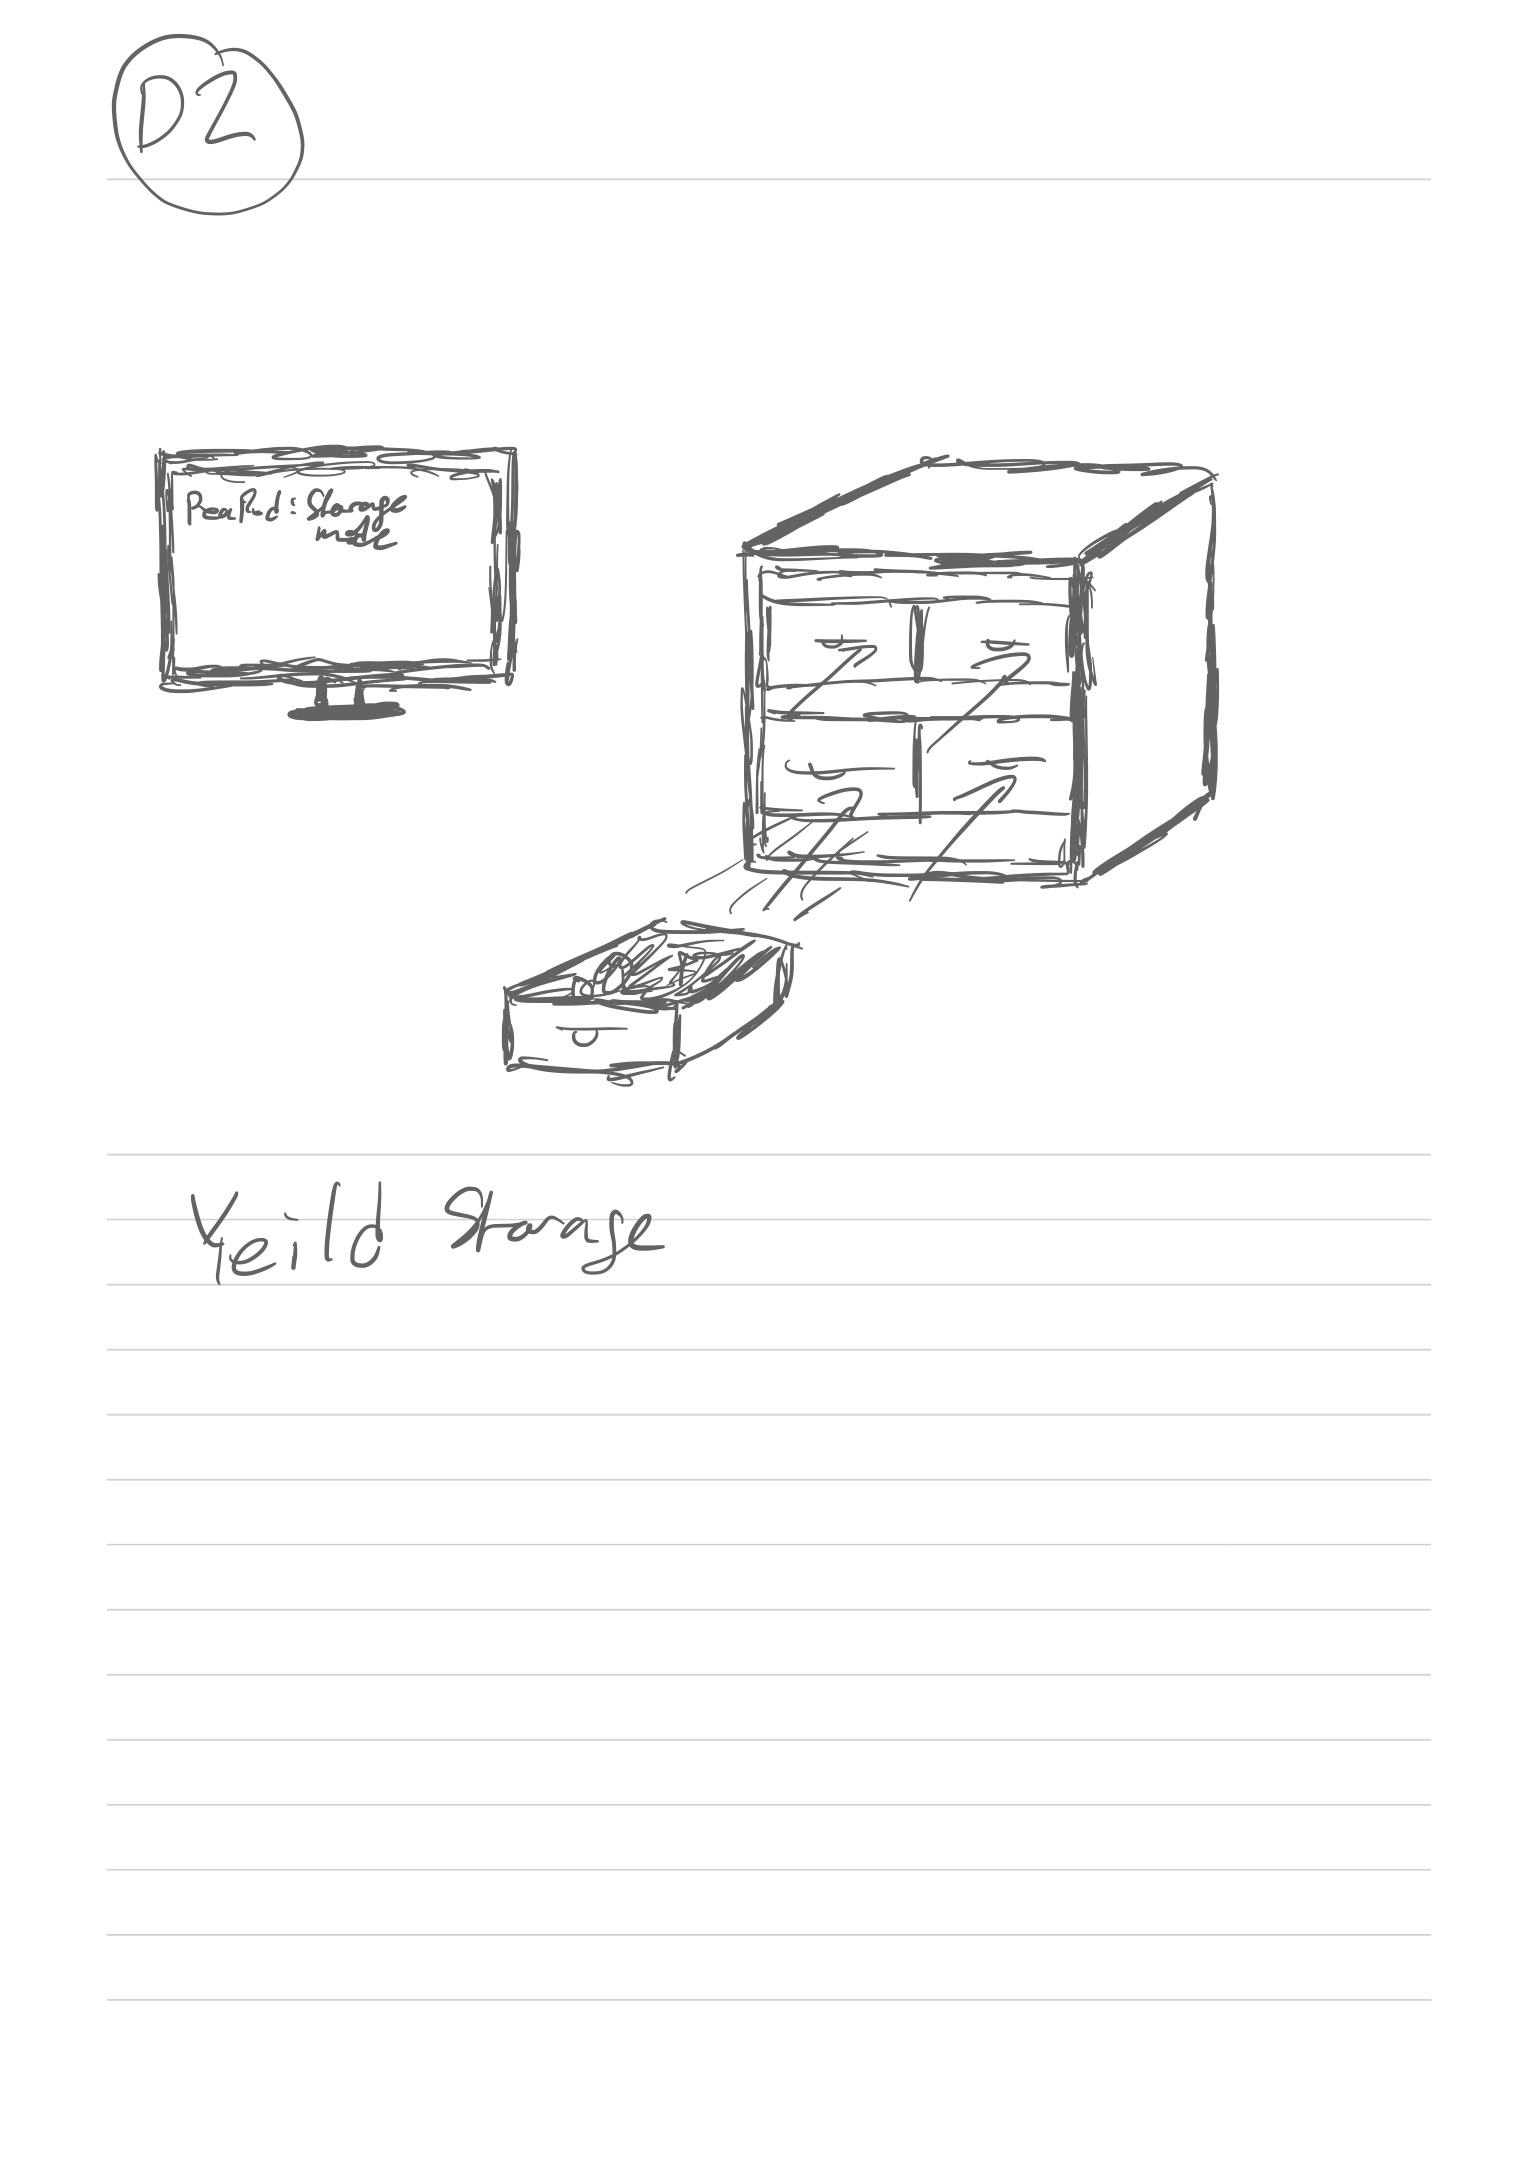 D2
PeaPod: Storage
mode
Yeild Storage